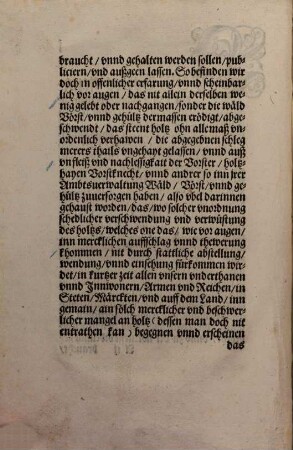 braucht / vnnd gehalten werden sollen / pub-
liciern / vnd außgeen lassen. So befinden wir
doch in offenlicher erfarung / vnnd scheinbar-
lich vor augen / das nit allein derselben we-
nig gelebt oder nachgangen / sonder die wäld
Vörst / vnnd gehültz dermassen erödigt / abge-
schwendt / das steent holtz ohn allemaß vn-
ordenlich verhawen / die abgegebnen schleg
merers thails vngehayt gelassen / vnnd auß
vnfleiß vnd nachlessigkait der Vorster / holtz-
hayen Vorstknecht / vnnd andrer so inn jrer
Ambtsuerwaltung Wäld / Vörst / vnnd ge-
hültz zuuersorgen haben / also vbel darinnen
gehaust worden / das / wo solcher vnordnung
schedlicher verschwendung vnd verwüstung
des holtzs / welches one das / wie vor augen /
inn mercklichen auffschlag vnnd thewerung
khommen / nit durch stattliche abstellung /
wendung / vnnd ansehung fürkommen wir-
det / in kurtzer zeit allen vnsern vnderthanen
vnnd Innwonern / Armen vnd Reichen / in
Steten / Märckten / vnd auff dem Land / inn
gemain / ain sölch mercklicher vnd beschwer-
licher mangel an holtz / dessen man doch nit
entrathen kan / begegnen vnnd erscheinen
das